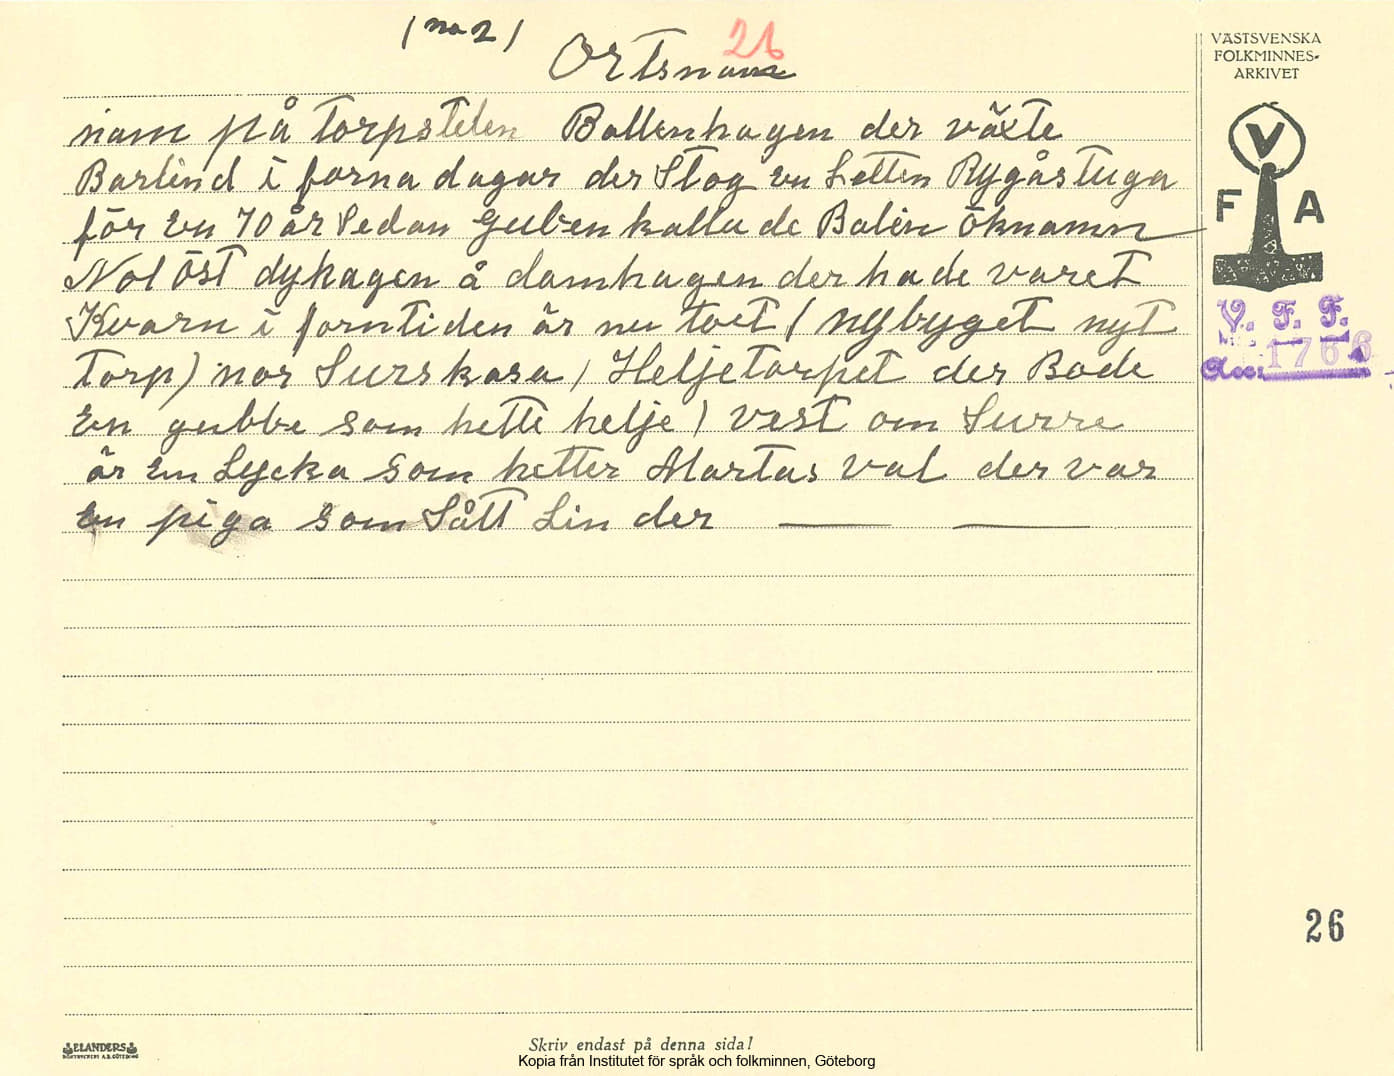 (no 2)
26
Ortsnam
nam på torpstelen Bollenhagen der växte
Barlind i forna dagar der Stog en Letten Rygåstuga
för en 70 år Sedan Gubben kalla de Balin öknamn
Nol öst dykagen å damhagen der hade varet
Kvarn i forntiden är nu toet (nybyget nyt
torp) nor Surskasa / Heljetorpet der Bode
En gubbe som hette helje) vest om Surre
är en Lycka som hetter Martas val der var
En piga som Sått Lin der
VÄSTSVENSKA
FOLKMINNES-
ARKIVET
V
F A
V. F. F.
Acc: 1766
26
ELANDERS
BOKTRYCKERI A.B. GÖTEBORG
Skriv endast på denna sida!
Kopia från Institutet för språk och folkminnen, Göteborg